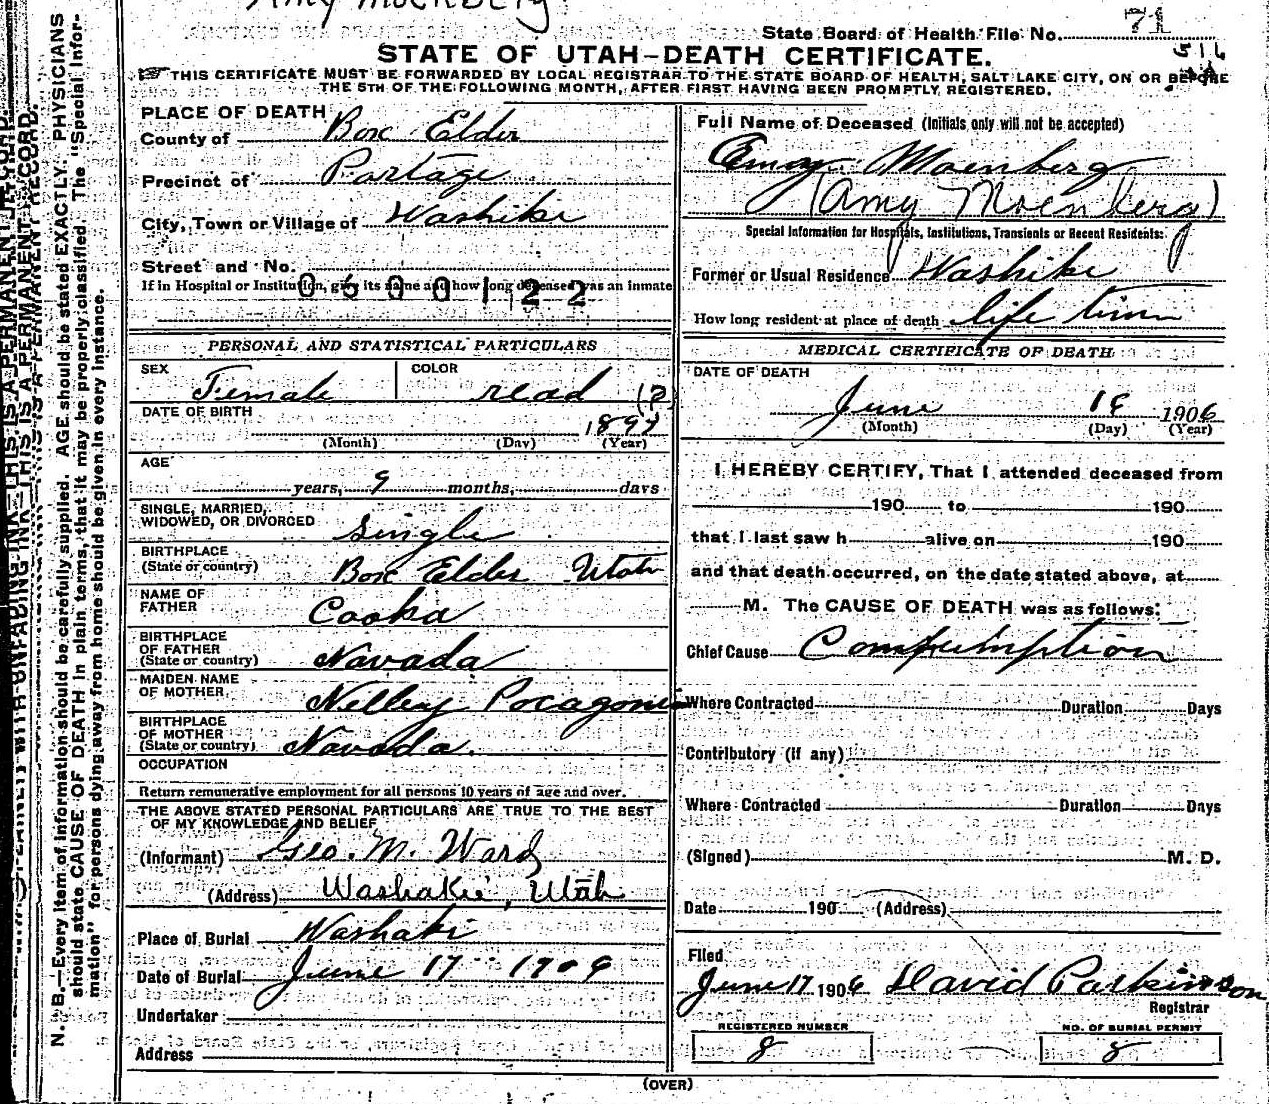 State Board of Health File No. 71
STATE OF UTAH—DEATH CERTIFICATE.
THIS CERTIFICATE MUST BE FORWARDED BY LOCAL REGISTRAR TO THE STATE BOARD OF HEALTH, SALT LAKE CITY, ON OR BEFORE
THE 5TH OF THE FOLLOWING MONTH, AFTER FIRST HAVING BEEN PROMPTLY REGISTERED.
PLACE OF DEATH
County of Box Elder
Precinct of Portage
City, Town or Village of Washike
Street and No.
If in Hospital or Institution, give its name and how long deceased was an inmate
0500122
PERSONAL AND STATISTICAL PARTICULARS
SEX Female COLOR read (?)
DATE OF BIRTH 189
(Month) (Day) (Year)
AGE
years, 9 months, days
SINGLE, MARRIED,
WIDOWED, OR DIVORCED Single
BIRTHPLACE
(State or country) Box Elder Utah
NAME OF
FATHER Cooka
BIRTHPLACE
OF FATHER
(State or country) Navada
MAIDEN NAME
OF MOTHER Nelley
BIRTHPLACE
OF MOTHER
(State or country) Navada.
OCCUPATION
Return remunerative employment for all persons 10 years of age and over.
THE ABOVE STATED PERSONAL PARTICULARS ARE TRUE TO THE BEST
OF MY KNOWLEDGE AND BELIEF
(Informant) Geo. M. Ward
(Address) Washakie, Utah
Place of Burial Washaki
Date of Burial June 17 1906
Undertaker
Address
Full Name of Deceased (Initials only will not be accepted)
Moenberg
(Amy Moenberg)
Special Information for Hospitals, Institutions, Transients or Recent Residents:
Former or Usual Residence Washike
How long resident at place of death life time
MEDICAL CERTIFICATE OF DEATH
DATE OF DEATH
June 1906
(Month) (Day) (Year)
I HEREBY CERTIFY, That I attended deceased from
190 to 190
that I last saw h alive on 190
and that death occurred, on the date stated above, at
M. The CAUSE OF DEATH was as follows:
Chief Cause Compsumption
Where Contracted Duration Days
Contributory (if any)
Where Contracted Duration Days
(Signed) M. D.
Date 190 (Address)
Filed
June 17 1906 David Parkinson
Registrar
REGISTERED NUMBER
8
NO. OF BURIAL PERMIT
8
(OVER)
N. B.—Every item of information should be carefully supplied. AGE should be stated EXACTLY. PHYSICIANS
should state CAUSE OF DEATH in plain terms, that it may be properly classified. The "Special Infor-
mation" for persons dying away from home should be given in every instance.